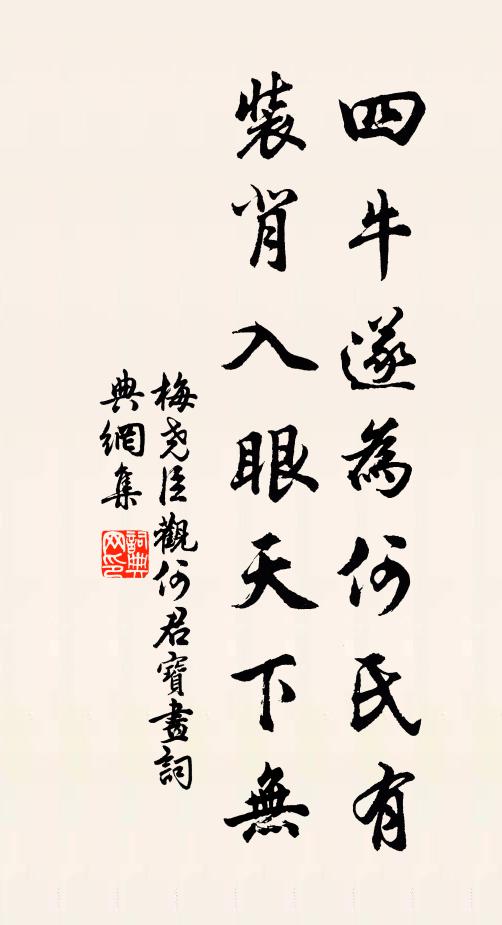 四牛遂為何氏有
裝背入眼天下無
梅堯臣觀何君寶畫詞
典網集
詞典
网印